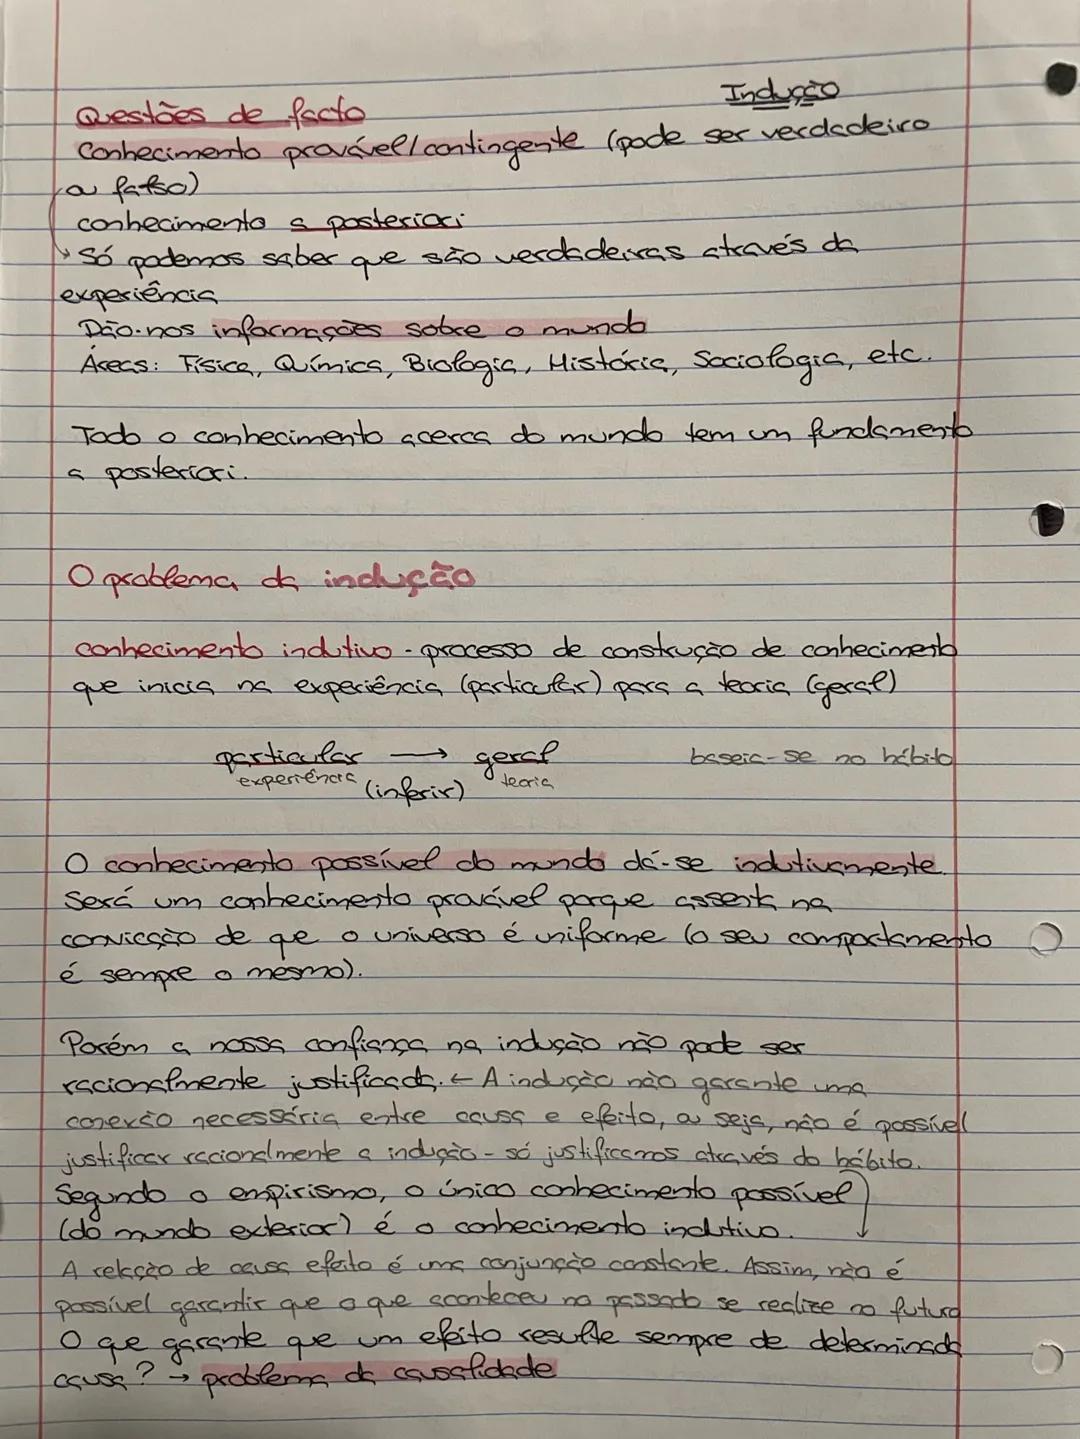 Indução
Questões de facto
Conhecimento provável/contingente (pode ser verdadeiro
ou falso)
conhecimento a posteriori
↳ Só podemos saber que são verdadeiras através da
experiência
Dão-nos informações sobre o mundo
Áreas: Física, Química, Biologia, História, Sociologia, etc.
Todo o conhecimento acerca do mundo tem um fundamento
a posteriori.
O problema da indução
conhecimento indutivo - processo de construção de conhecimento
que inicia na experiência (particular) para a teoria (geral)
particular → geral baseia-se no hábito
experiência (inferir) teoria
O conhecimento possível do mundo dá-se indutivamente.
Será um conhecimento provável porque assenta na
convicção de que o universo é uniforme (o seu comportamento
é sempre o mesmo).
Porém a nossa confiança na indução não pode ser
racionalmente justificada. ← A indução não garante uma
conexão necessária entre causa e efeito, ou seja, não é possível
justificar racionalmente a indução - só justificamos através do hábito.
Segundo o empirismo, o único conhecimento possível
(do mundo exterior) é o conhecimento indutivo. ↓
A relação de causa efeito é uma conjunção constante. Assim, não é
possível garantir que o que aconteceu no passado se realize no futuro
O que garante que um efeito resulte sempre de determinada
causa? → problema da causalidade